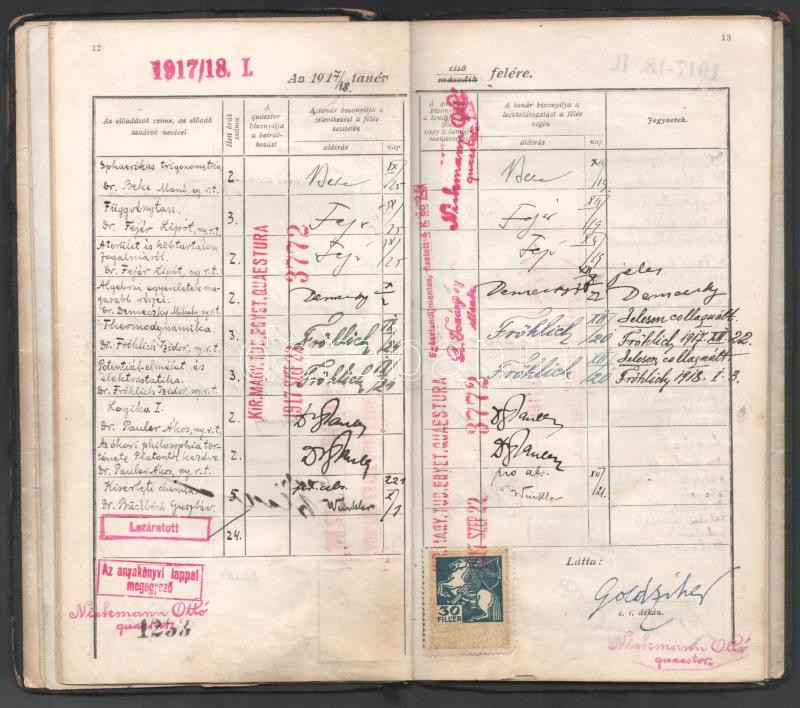 12
1917/18. I.
Az 1917/18. tanév
Az előadások címe, az előadó tanárok nevével
Heti órák száma
A quaestor bizonyítja a beiratkozást
A tanár bizonyítja a jelentkezést a félév kezdetén
aláírás
nap
Sphaerikus trigonometria
Dr. Beke Manó, ny. r. t.
2.
Beke
IX/25
Függvénytan.
Dr. Fejér Lipót, ny. r. t.
3.
Fejér
IX/25
A terület és köbtartalom
fogalmáról.
Dr. Fejér Lipót, ny. r. t.
2.
Fejér
IX/25
Algebrai egyenletek ma-
gasabb részei.
Dr. Demeczky Mihály ny. r. t.
2.
Demeczky
X/2
Thermodynamika.
Dr. Fröhlich Izidor, ny. r. t.
3.
Fröhlich
IX/24
Potentiál-elmélet és
elektrostatika.
Dr. Fröhlich Izidor, ny. r. t.
3.
Fröhlich
IX/24
Logika I.
Dr. Pauler Ákos, ny. r. t.
2.
Dr Pauler
Az ókori philosophia tör-
ténete Platontól kezdve.
Dr. Pauler Ákos, ny. r. t.
2.
Dr Pauler
Kísérleti chemia.
Dr. Buchböck Gusztáv.
5.
Winkler
X/1
Lezáratott
24.
KIR. MAGY. TUD. EGYET. QUAESTURA
1917 SZEP 22
3772
Az anyakönyvi lappal
megegyező
Nickmann Ottó
quaestor.
1253
13
1917-18. II.
első
második
felére.
A tanár bizonyítja a
leczkelátogatást a félév
végén
aláírás
nap
Jegyzetek.
Nickmann Ottó
quaestor.
KIR. MAGY. TUD. EGYET. QUAESTURA
1917 SZEP 22
3772
Beke
XII/19
Fejér
XII/19
Fejér
XII/19
Demeczky
XII/22
jeles
Demeczky
Fröhlich
XII/20
Jelesen collogvált.
Fröhlich 1917. XII. 22.
Fröhlich
XII/20
Jelesen collogvált.
Fröhlich 1918. I. 3.
Dr Pauler
Dr Pauler
pro abs.
Winkler
XII/21.
30
FILLÉR
Látta:
Goldziher
e. i. dékán.
Nickmann Ottó
quaestor.
darabanth